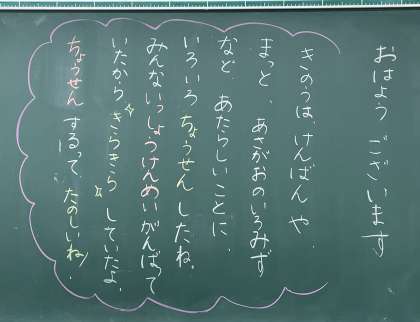 おはよう ございます
きのうは、けんばん や、
まっと、あさがおのいろみず
など、あたらしいことに、
いろいろ ちょうせん したね。
みんないっしょうけんめいがんばって
いたから、きらきら していたよ。
ちょうせん するって、たのしいね!